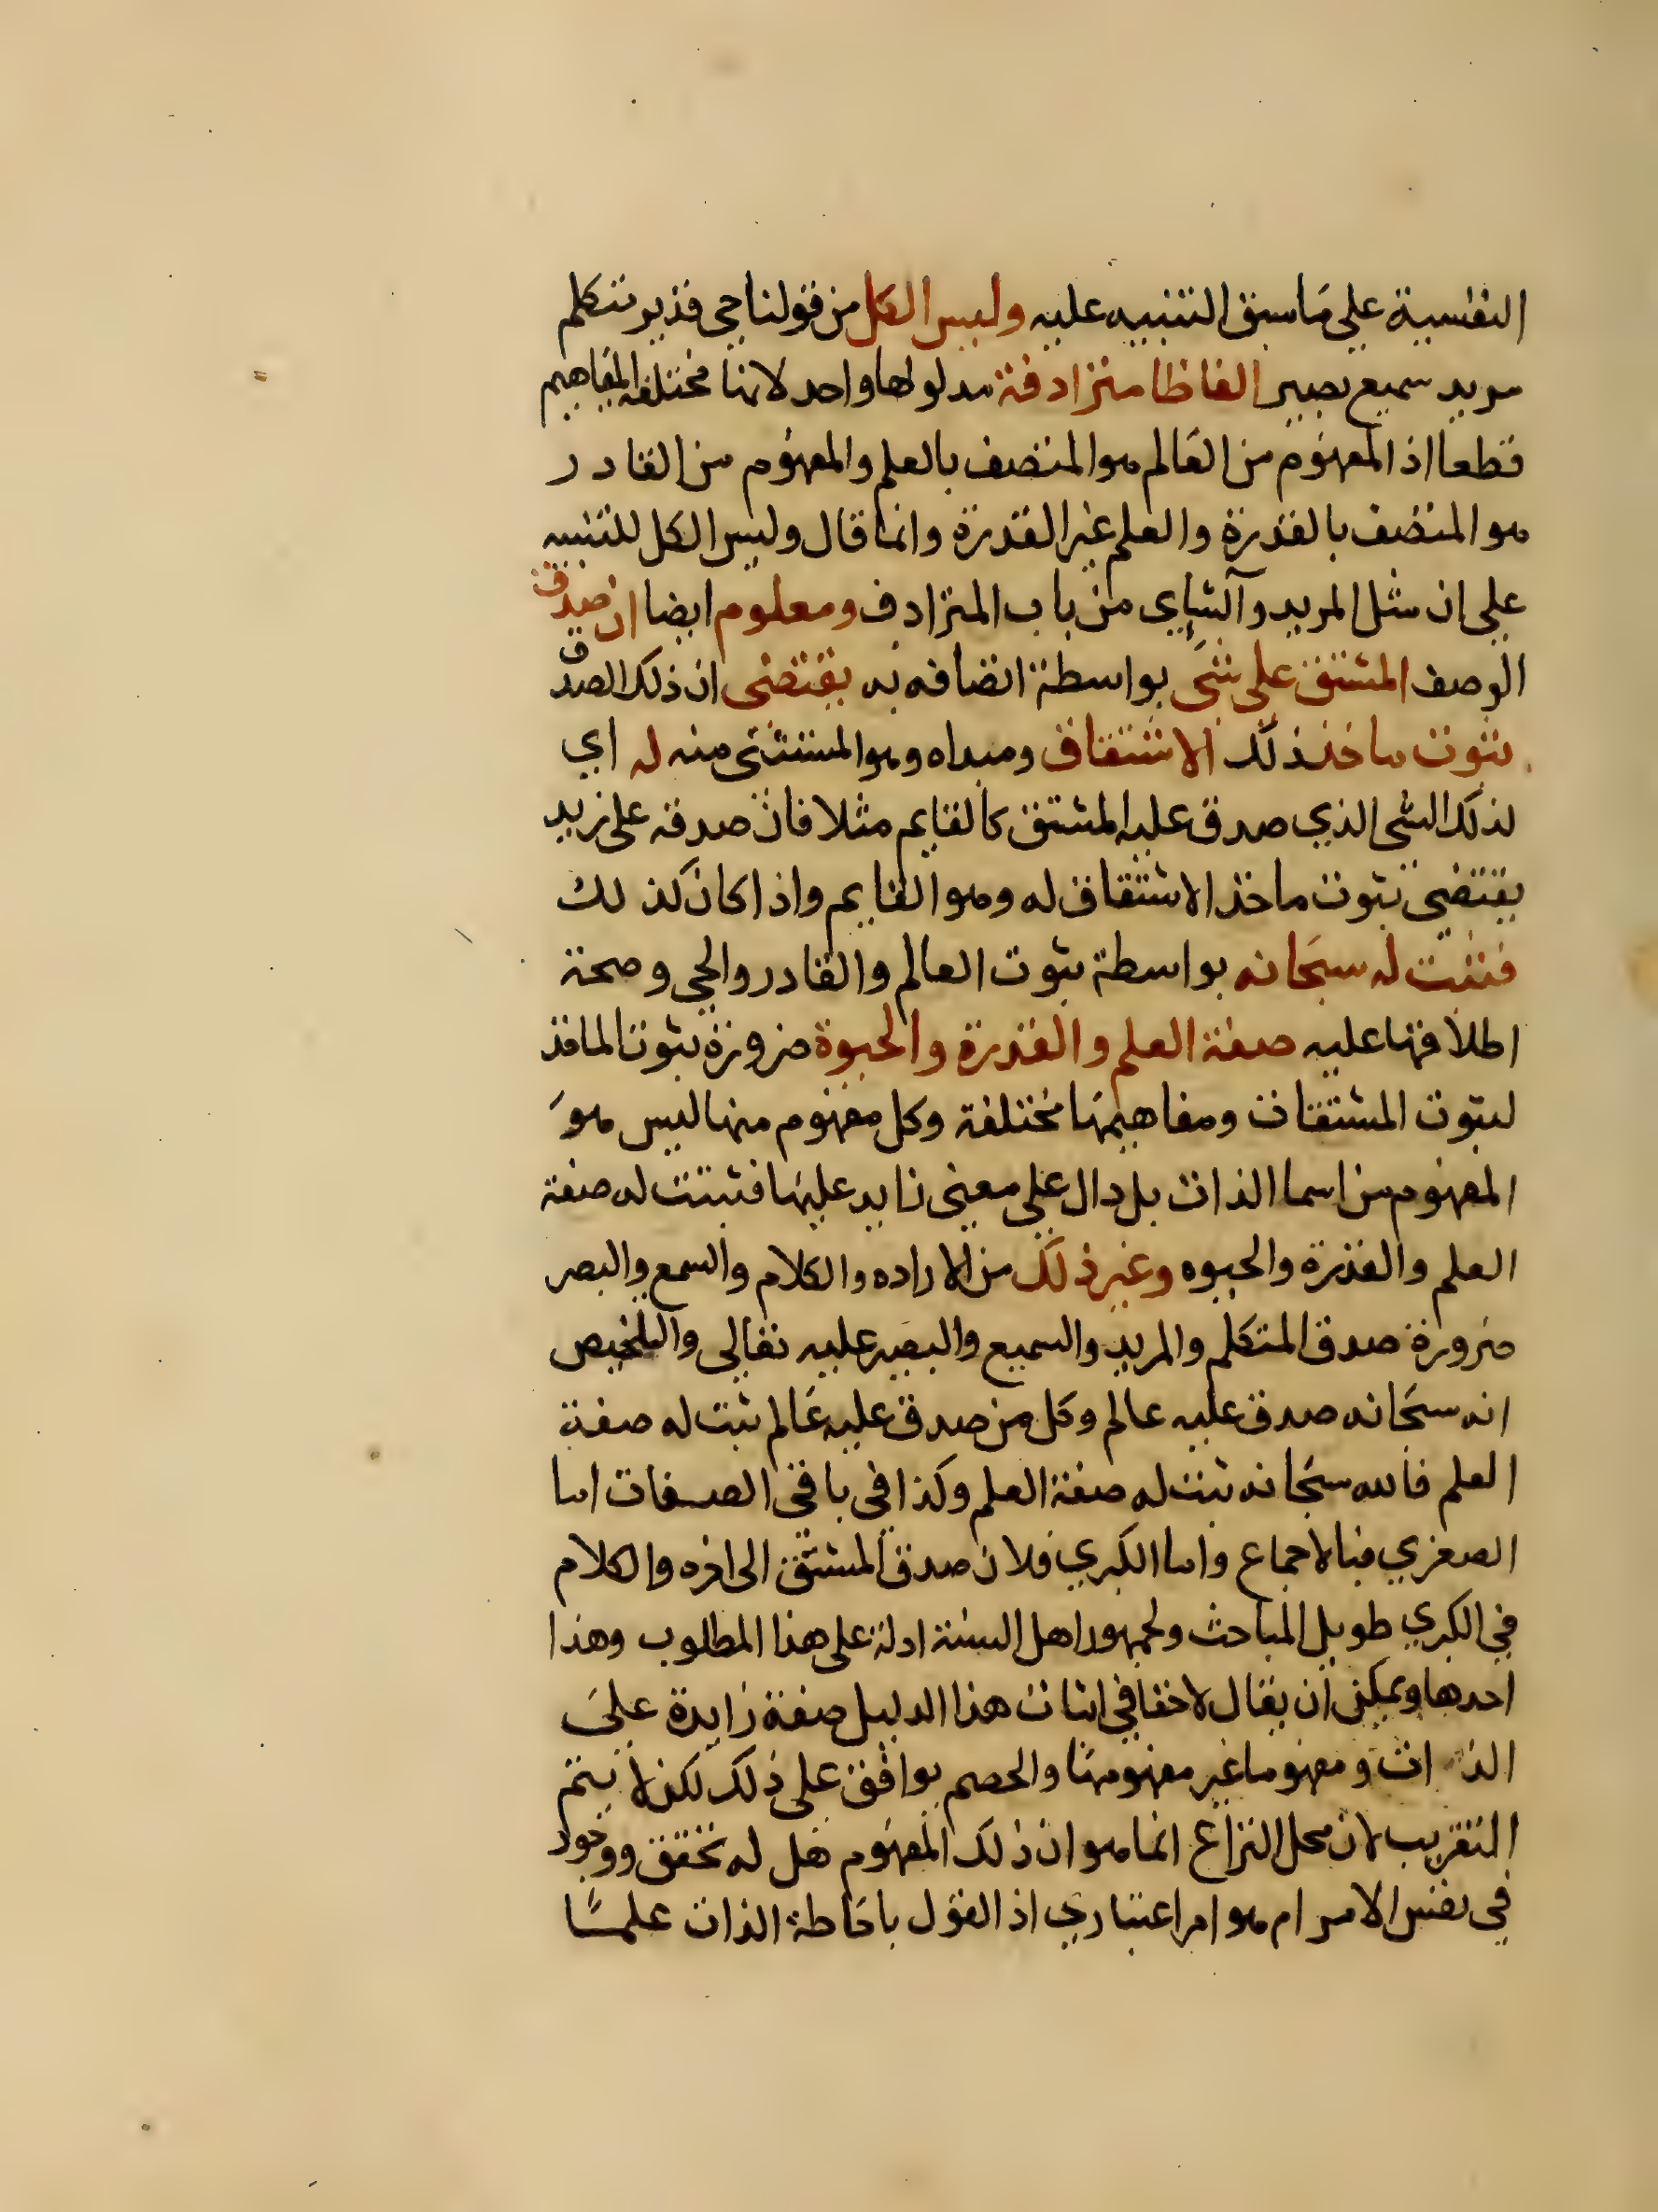 النفسية على ما سبق التنبيه عليه وليس الكل من قولنا حى قدير متكلم
مريد سميع بصير الفاظا مترادفة مدلولها واحد لانها مختلفة المفاهيم
قطعا اذ المفهوم من العالم هو المتصف بالعلم والمفهوم من القادر
هو المتصف بالقدرة والعلم غير القدرة وانما قال وليس الكل للتنبيه
على ان مثل المريد والشاي من باب المترادف ومعلوم ايضا ان صدق
الوصف المشتق على شى بواسطة اتصافه به يقتضى ان ذلك الصدق
ثبوت ماخذ ذلك الاشتقاق ومبداه وهو المشتق منه له اي
لذلك الشى الذي صدق عليه المشتق كالقايم مثلا فان صدقه على زيد
يقتضى ثبوت ماخذ الاشتقاق له وهو القايم واذا كان كذلك
فثبت له سبحانه بواسطة ثبوت العالم والقادر والحى وصحة
اطلاقها عليه صفة العلم والقدرة والحيوة ضرورة ثبوت الماخذ
لثبوت المشتقات ومفاهيمها مختلفة وكل مفهوم منها ليس هو
المفهوم من اسما الذات بل دال على معنى زايد عليها فثبتت له صفة
العلم والقدرة والحيوه وغير ذلك من الاراده والكلام والسمع والبصر
ضرورة صدق المتكلم والمريد والسميع والبصير عليه تعالى والتلخيص
انه سبحانه صدق عليه عالم وكل من صدق عليه عالم ثبت له صفة
العلم فالله سبحانه ثبت له صفة العلم وكذا فى باقى الصفات اما
الصغري فبالاجماع واما الكبري فلان صدق المشتق الى اخره والكلام
في الكبري طويل المباحث ولجمهور اهل السنة ادلة على هذا المطلوب وهذا
احدها ويمكن ان يقال لا خفا في اثبات هذا الدليل صفة زايدة على
الذات ومفهوما غير مفهومها والخصم يوافق على ذلك لكن لا يتم
التقريب لان محل النزاع انما هو ان ذلك المفهوم هل له تحقق ووجود
في نفس الامر ام هو امر اعتباري اذ القول باحاطة الذات علما